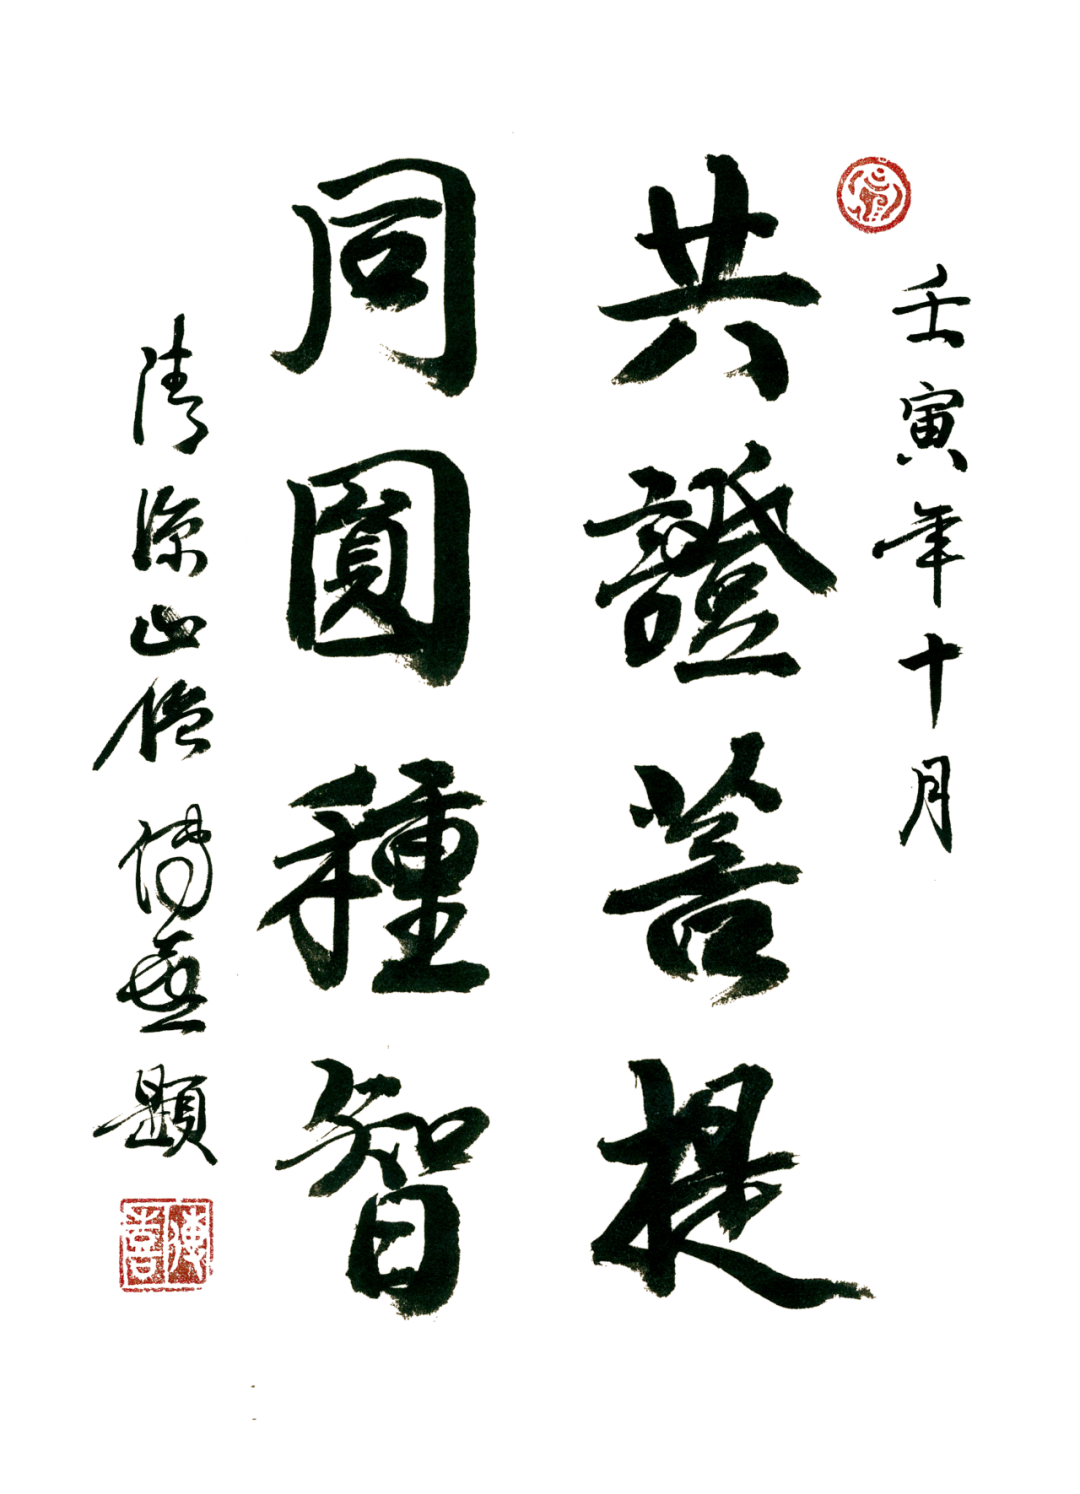 壬寅年十月
共證菩提
同圓種智
清涼山僧傳喜題
傳喜